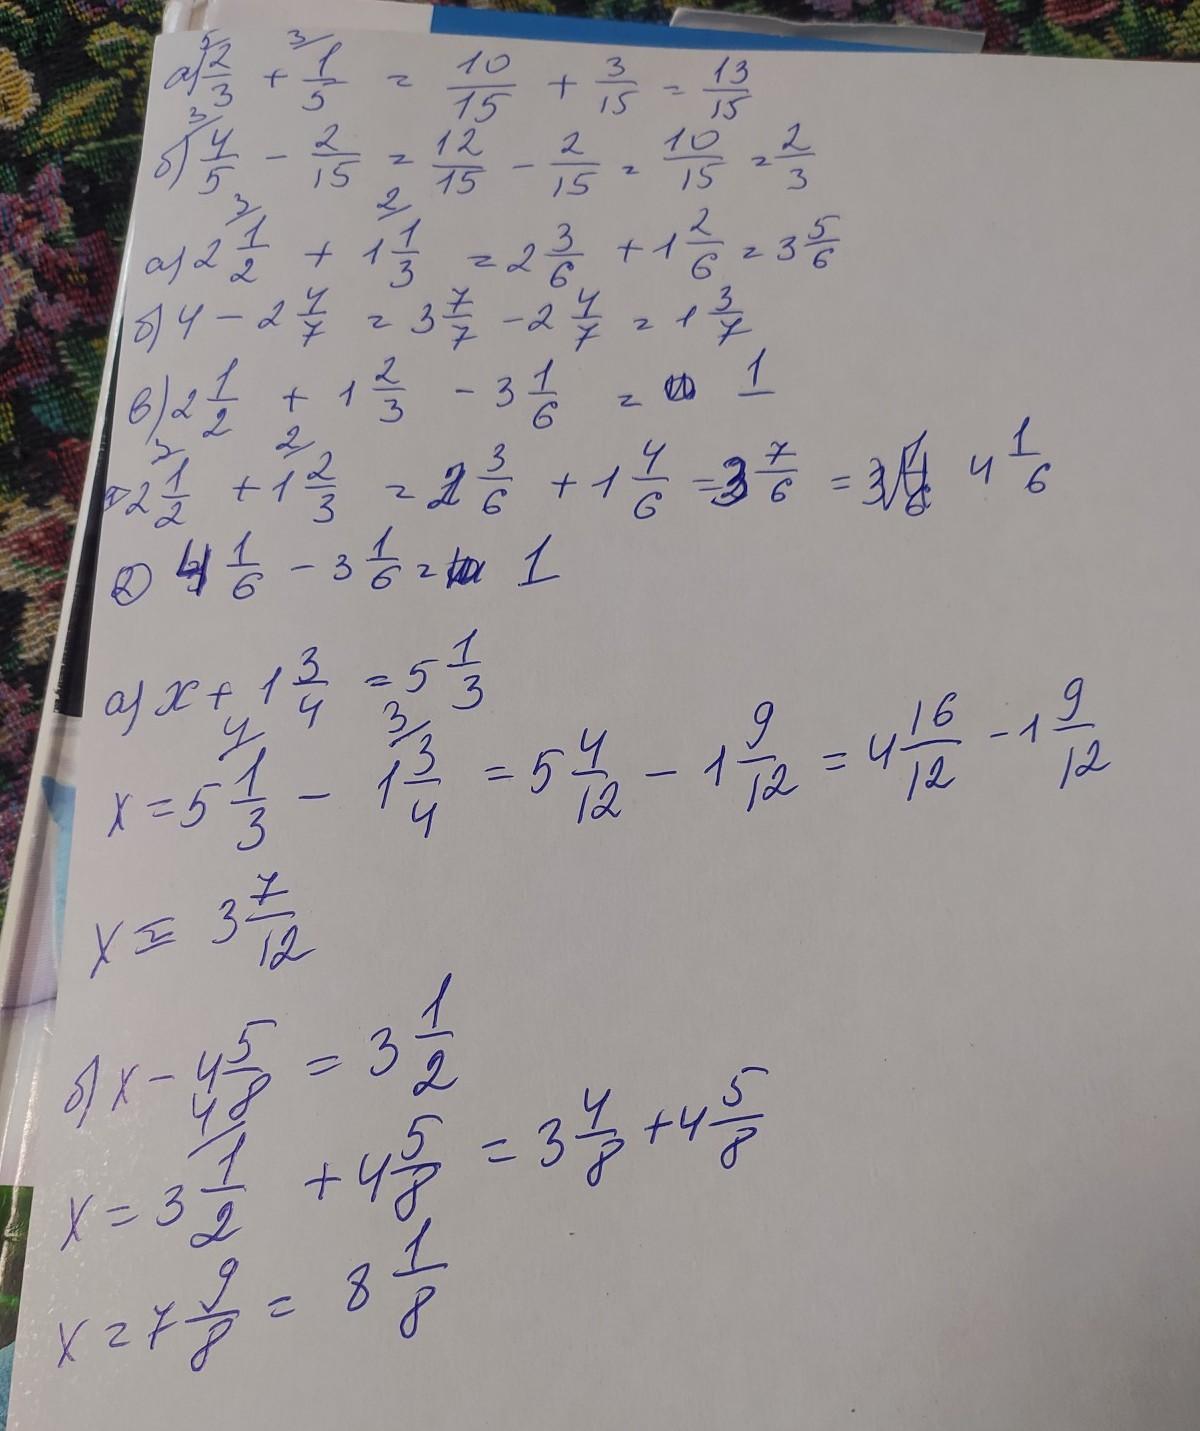 а) 5/ 2/3 + 3/ 1/5 = 10/15 + 3/15 = 13/15
б) 3/ 4/5 - 2/15 = 12/15 - 2/15 = 10/15 = 2/3
а) 2 3/ 1/2 + 1 2/ 1/3 = 2 3/6 + 1 2/6 = 3 5/6
б) 4 - 2 4/7 = 3 7/7 - 2 4/7 = 1 3/7
в) 2 1/2 + 1 2/3 - 3 1/6 = 1
2 3/ 1/2 + 1 2/ 2/3 = 2 3/6 + 1 4/6 = 3 7/6 = 4 1/6
2) 4 1/6 - 3 1/6 = 1
а) x + 1 3/4 = 5 1/3
x = 5 4/ 1/3 - 1 3/ 3/4 = 5 4/12 - 1 9/12 = 4 16/12 - 1 9/12
x = 3 7/12
б) x - 4 5/8 = 3 1/2
x = 3 4/ 1/2 + 4 5/8 = 3 4/8 + 4 5/8
x = 7 9/8 = 8 1/8